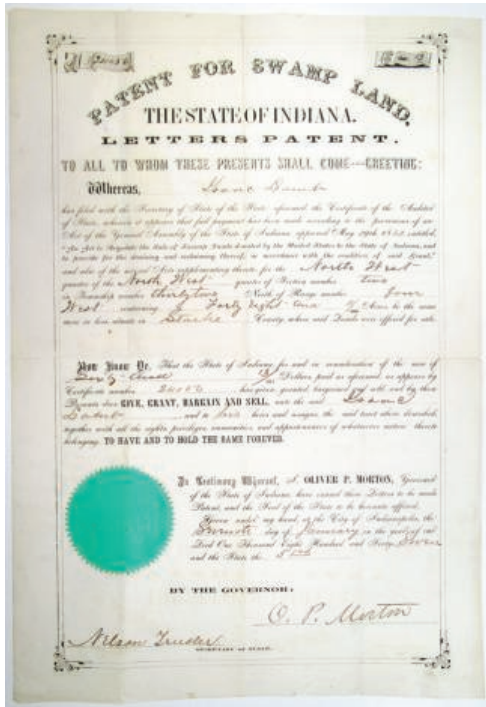 PATENT FOR SWAMP LAND.
THE STATE OF INDIANA.
LETTERS PATENT.
TO ALL TO WHOM THESE PRESENTS SHALL COME—GREETING:
Whereas, Isaac
has filed with the Secretary of State of the State aforesaid the Certificate of the Auditor
of State, wherein it appears that full payment has been made according to the provisions of an
Act of the General Assembly of the State of Indiana approved May 29th 1852, entitled,
"An Act to Regulate the Sale of Swamp Lands donated by the United States to the State of Indiana, and
to provide for the draining and reclaiming thereof, in accordance with the condition of said Grant,"
and also of the several Acts supplementary thereto for the North West
quarter of the North West quarter of Section number two
in Township number thirty two North of Range number four
West containing Forty Eight Acres be the same
more or less, situate in Starke County, where said Lands were offered for sale.
Now Know Ye, That the State of Indiana for and in consideration of the sum of
Dollars, paid as aforesaid, as appears by
Certificate number has given, granted, bargained and sold, and by these
Presents does GIVE, GRANT, BARGAIN AND SELL, unto the said Isaac
and to his heirs and assigns the said tract above described,
together with all the rights, privileges, immunities, and appurtenances of whatsoever nature thereto
belonging. TO HAVE AND TO HOLD THE SAME FOREVER.
In Testimony Whereof, I, OLIVER P. MORTON, Governor
of the State of Indiana, have caused these Letters to be made
Patent, and the Seal of the State to be hereunto affixed.
Given under my hand, at the City of Indianapolis, the
day of January in the year of our
Lord One Thousand Eight Hundred and Sixty Seven
and the State the 51st
BY THE GOVERNOR:
O. P. Morton
Nelson Trusler
SECRETARY OF STATE.